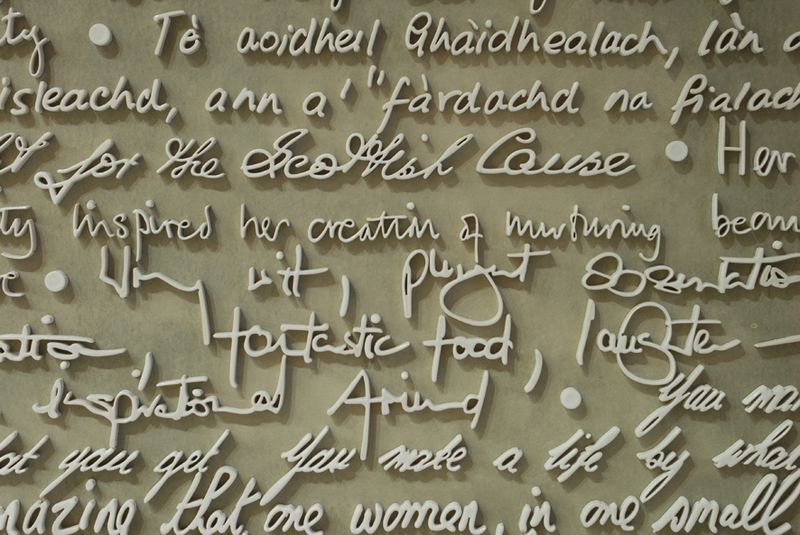 ty • Tè aoidheil Ghàidhealach, làn
isleachd, ann a' "fàrdachd na fialach
for the Scottish Cause • Her
ty inspired her creation of nurturing beau
• Wry wit, pungent observation
ation, fantastic food, laughter –
Inspirational Friend • You ma
at you get You make a life by what
mazing that one women, in one small